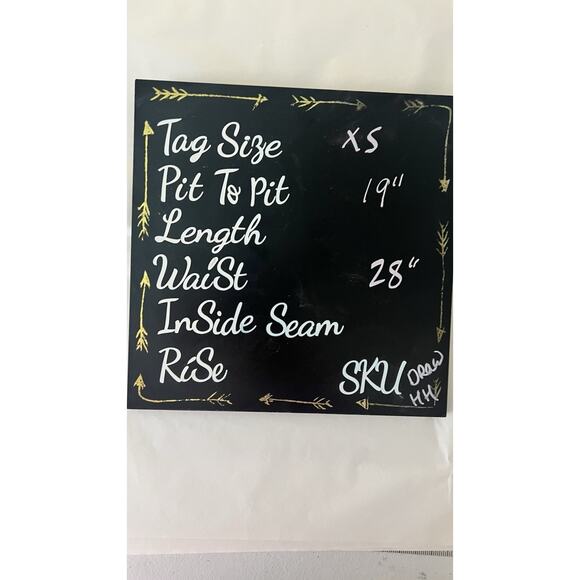 Tag Size XS
Pit To Pit 19"
Length
Waist 28"
InSide Seam
RiSe
SKU DRAW
HH